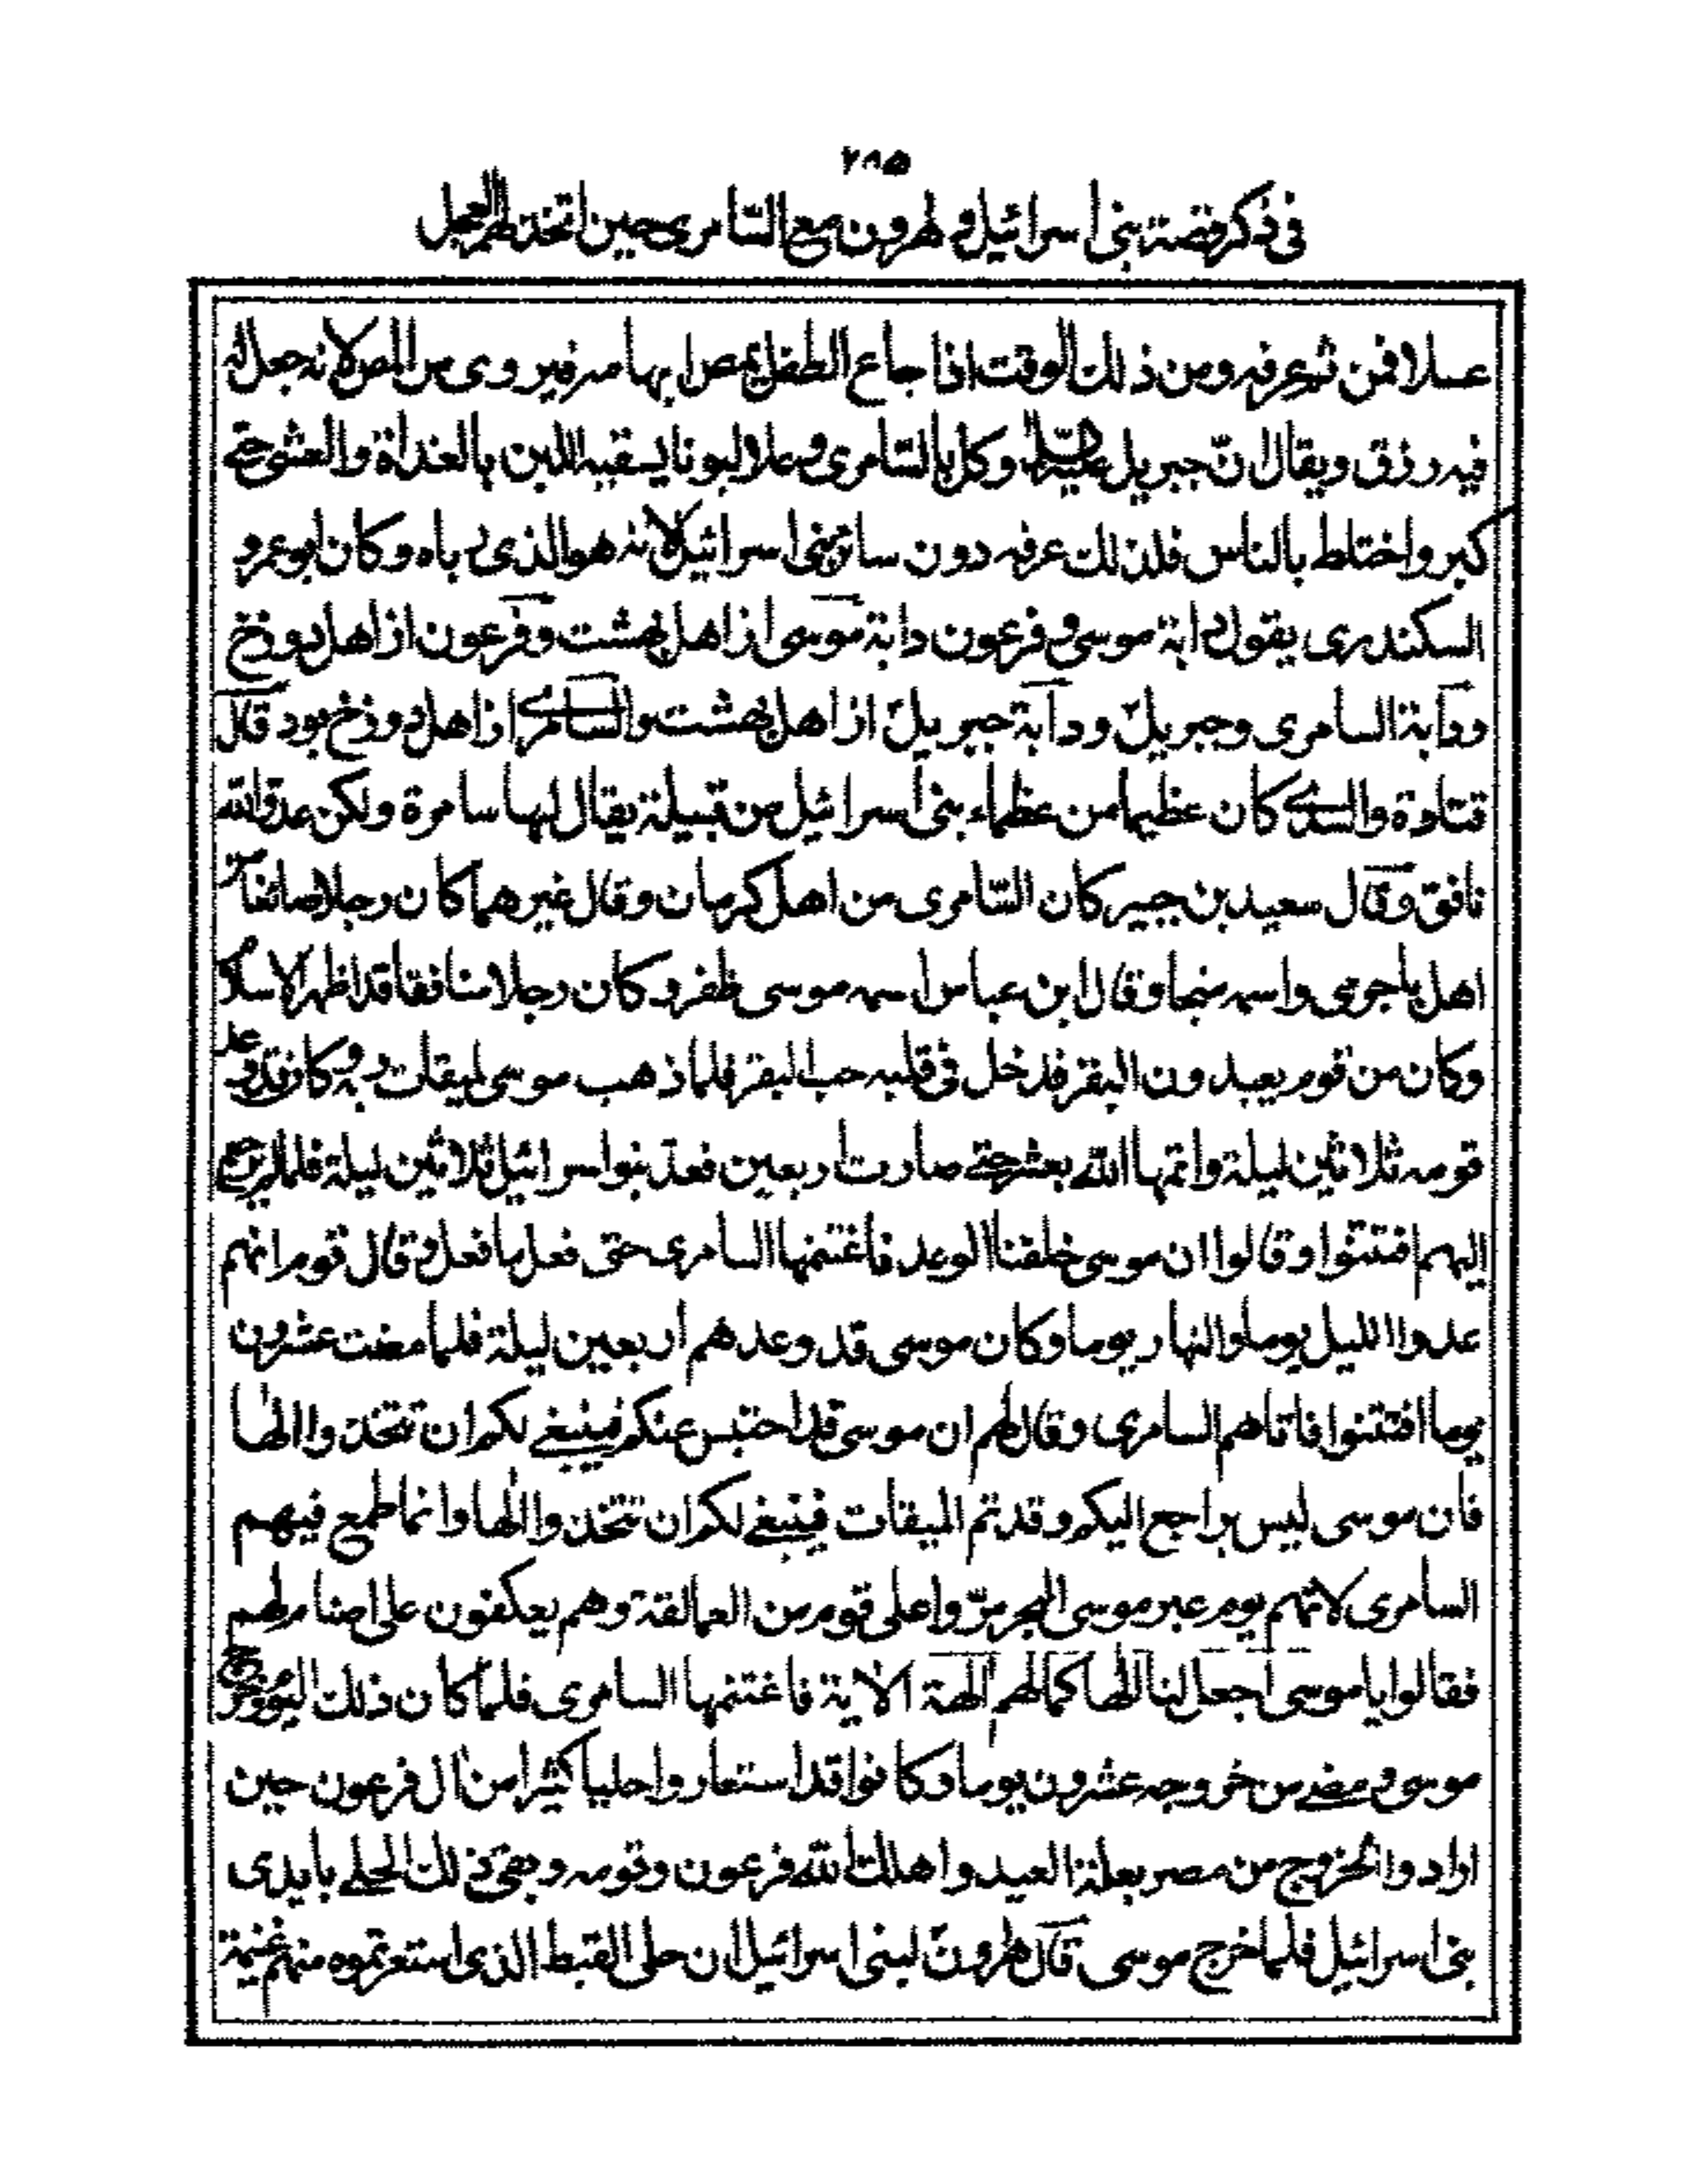 ٢٨٥
فى ذكر قصة بنى اسرائيل و هٰرون مع السّامرى حين اتخذ لهم العجل
عسلا فمن ثم عرفه ومن ذلك الوقت اذا جاع الطفل يمص ابهامه فيروى من المص لانه جعل له
فيه رزق ويقال انّ جبريل عليه السلام وكل بالسّامرى وعلا لبونا يسقيه اللبن بالغداة والعشى حتى
كبر واختلط بالناس فلذلك عرفه دون سائر بنى اسرائيل لانه هو الذى رباه وكان ابو عمرو
السكندرى يقول دابة موسى و فرعون دابة موسى از اهل بهشت وفرعون از اهل دوزخ
ودابة السامرى وجبريل ودابة جبريل از اهل بهشت والسامرى از اهل دوزخ بود قال
قتاوة والسدى كان عظيما من عظماء بنى اسرائيل من قبيلة يقال لها سامرة ولكن عدو الله
نافق وقال سعيد بن جبير كان السّامرى من اهل كرمان وقال غيرهما كان رجلا صائغا من
اهل باجرمى واسمه منجا وقال ابن عباس اسمه موسى ظفر وكان رجلا منافقا قد اظهر الاسلام
وكان من قوم يعبدون البقر فدخل فى قلبه حب البقر فلما ذهب موسى لميقات ربه وكان قد وعد
قومه ثلاثين ليلة واتمها الله بعشر حتى صارت اربعين فعدّ بنوا سرائيل ثلاثين ليلة فلما لم يرجع
اليهم افتتنوا وقالوا ان موسى خلفنا الوعد فاغتنمها السامرى حتى فعل ما فعل وقال قوم انهم
عدوا الليل يوما والنهار يوما وكان موسى قد وعدهم اربعين ليلة فلما مضت عشرون
يوما افتتنوا فاتاهم السامرى وقال لهم ان موسى قد احتبس عنكم فينبغى لكم ان تتخذوا الٰها
فان موسى ليس براجع اليكم وقد تم الميقات فينبغى لكم ان تتخذوا الٰها وانما طمع فيهم
السامرى لانهم يوم عبر موسى البحر مرّوا على قوم من العمالقة وهم يعكفون على اصنام لهم
فقالوا يا موسى اجعل لنا الٰها كما لهم اٰلهة الاٰية فاغتنمها السامرى فلما كان ذلك اليوم وخرج
موسى ومضى من خروجه عشرون يوما وكانوا قد استعاروا حليا كثيرا من اٰل فرعون حين
ارادوا الخروج من مصر بعلة العيد واهلك الله فرعون وقومه وبقى ذلك الحلى بايدى
بنى اسرائيل فلما خرج موسى قال هٰرون لبنى اسرائيل ان حلى القبط الذى استعرتموه منهم غنيمة